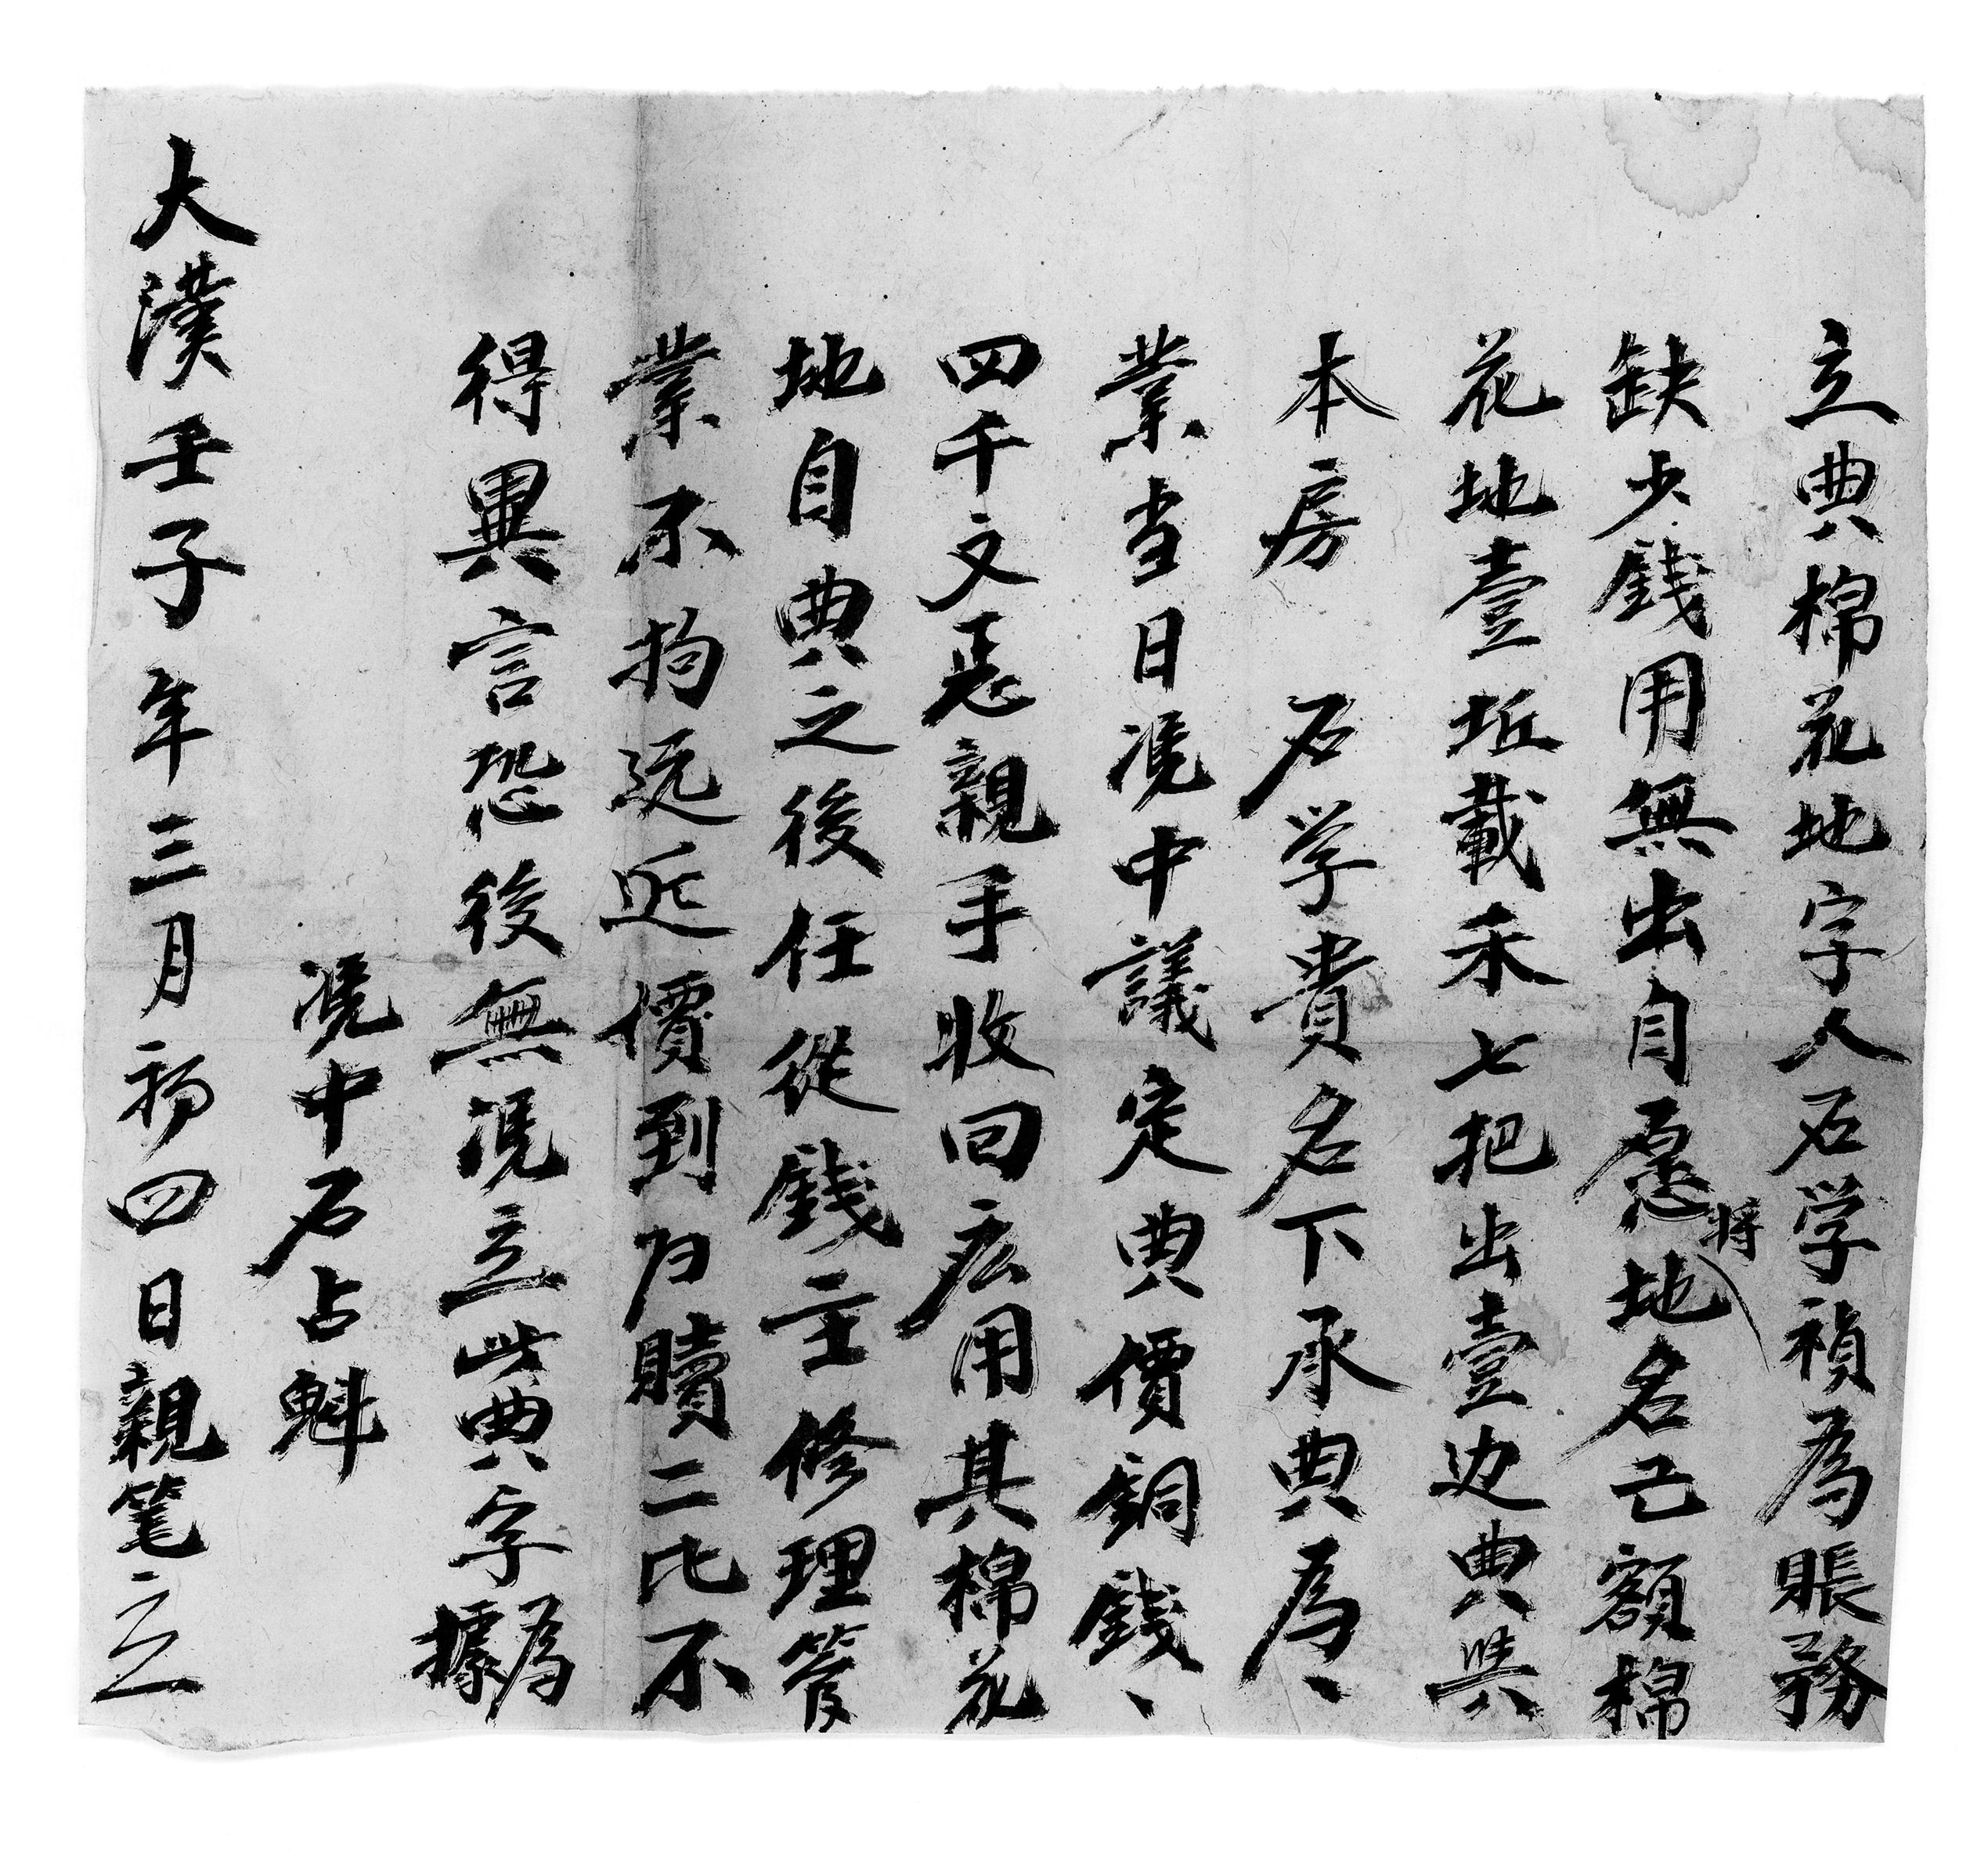 立典棉花地字人石学禎為賬務
缺少錢用無出自愿將地名亡額棉
花地壹坵載禾七把出壹边典與
本房 石学貴名下承典為、
業当日凴中議定典價銅錢、
四千文惪親手收回应用其棉花
地自典之後任從錢主修理管
業不拘远近價到归贖二比不
得異言恐後無凴立此典字為據
凴中石占魁
大漢壬子年三月初四日親笔立